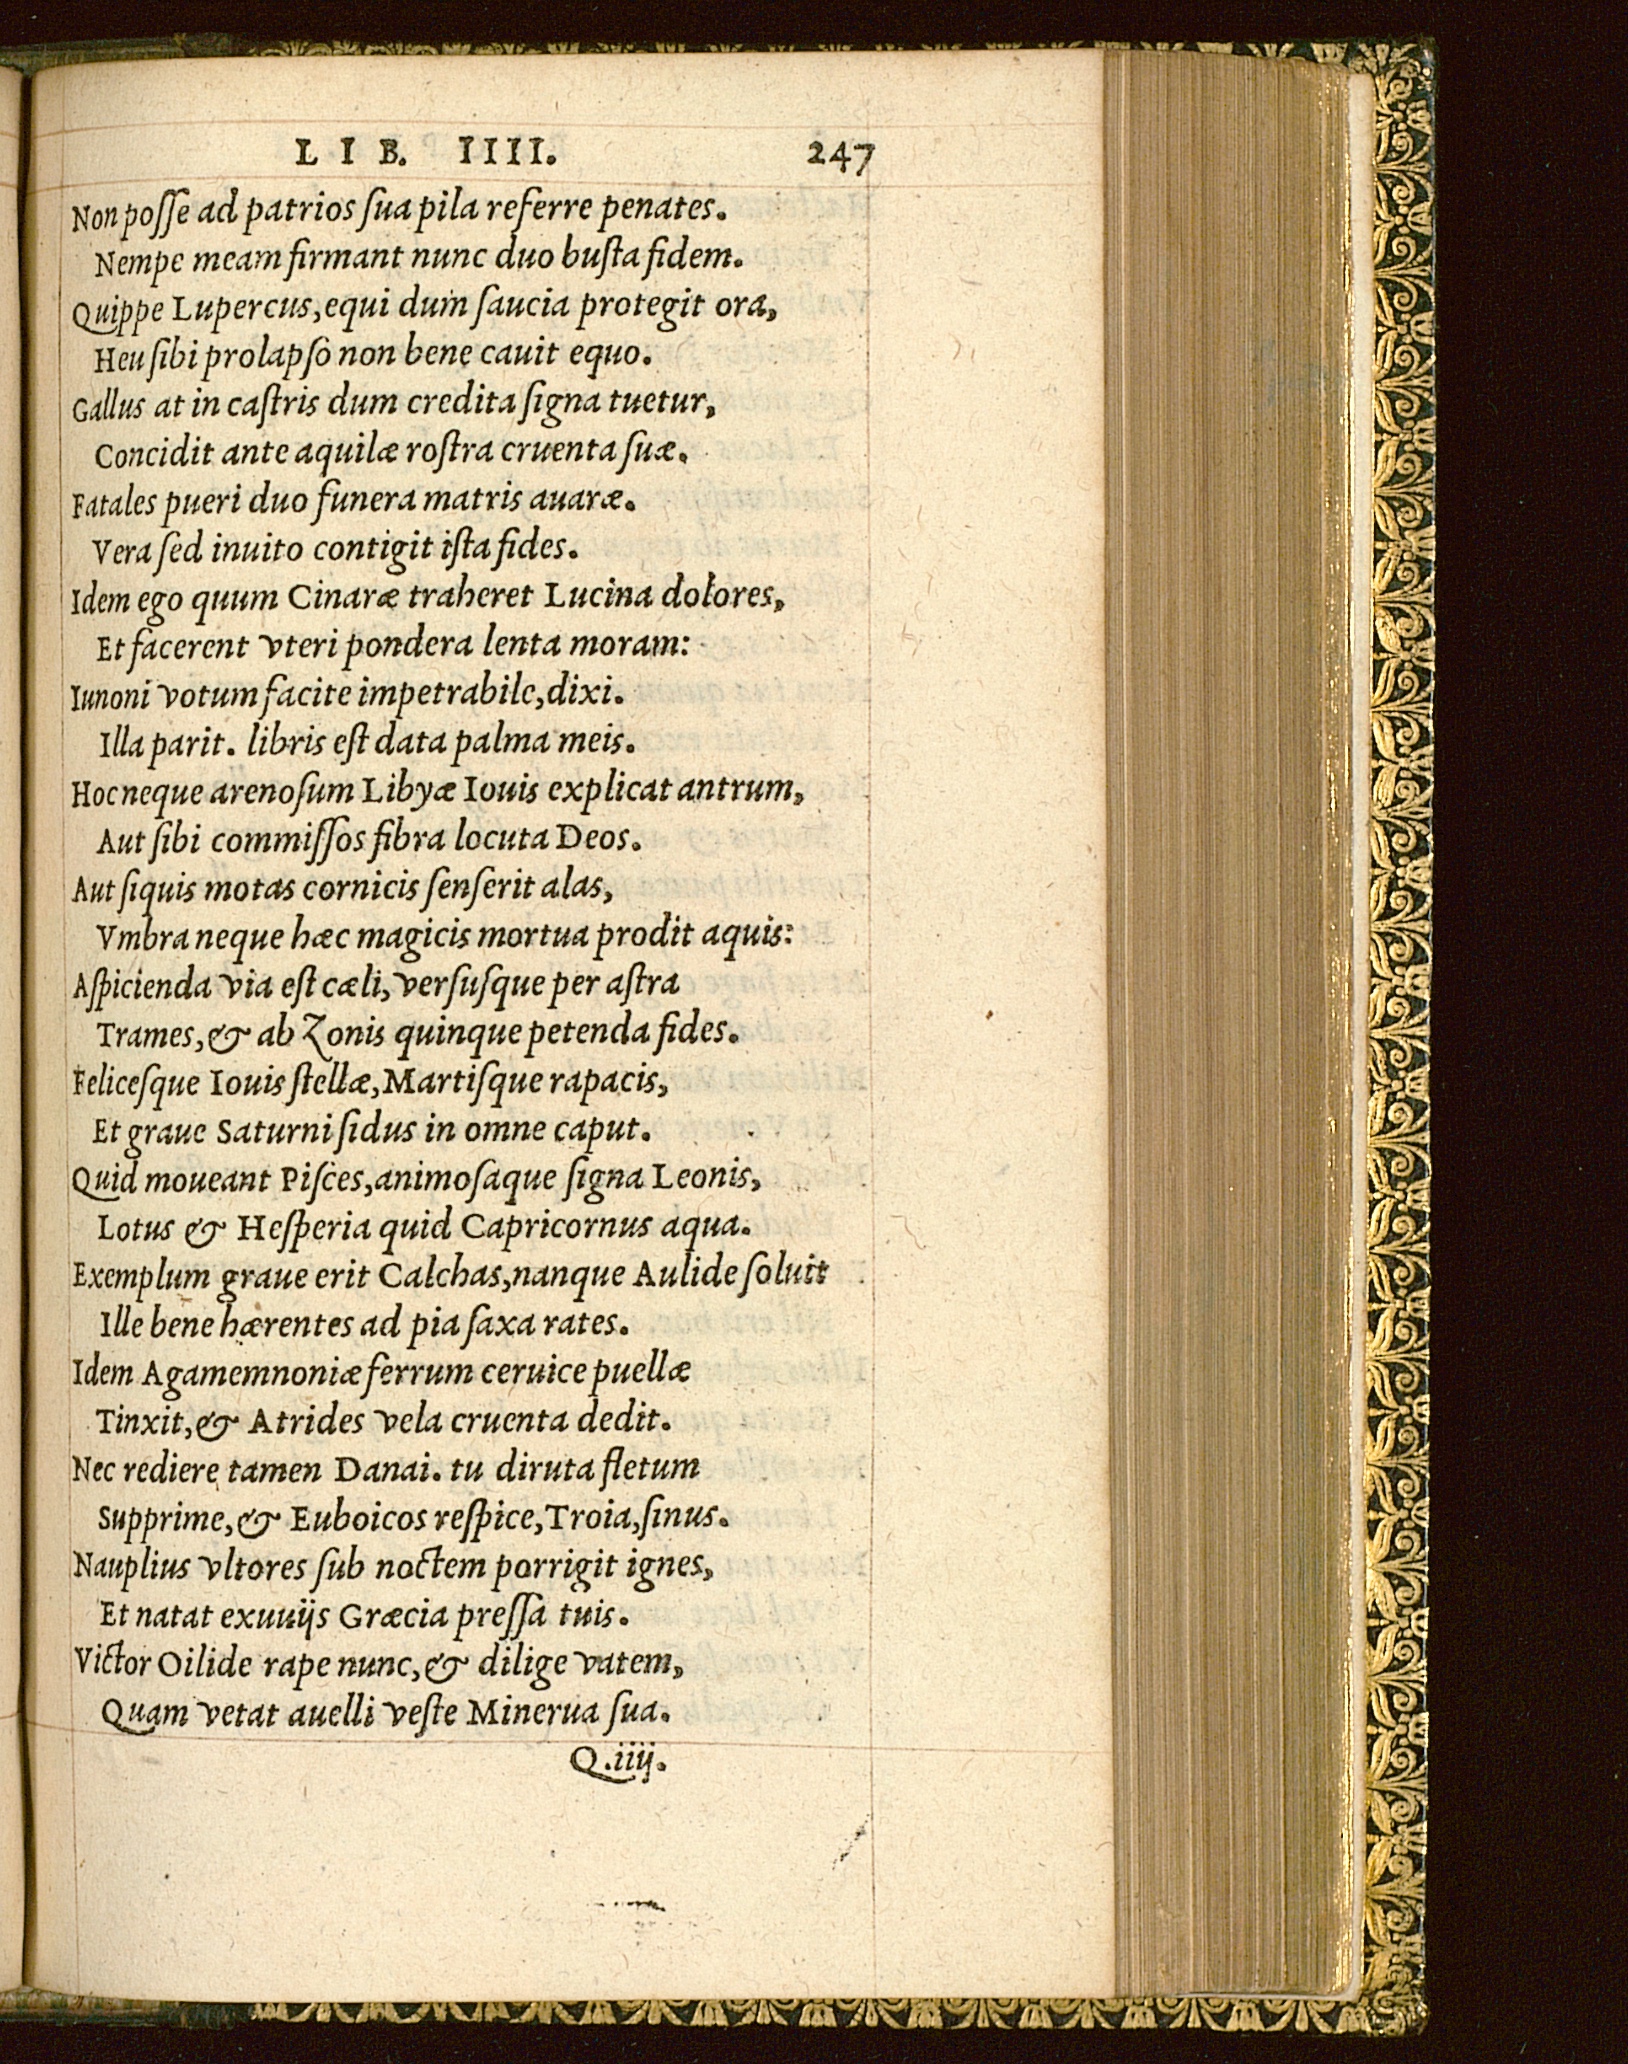 LIB. IIII. 247
Non poſſe ad patrios ſua pila referre penates.
Nempe meam firmant nunc duo buſta fidem.
Quippe Lupercus, equi dum ſaucia protegit ora,
Heu ſibi prolapſo non bene cauit equo.
Gallus at in caſtris dum credita ſigna tuetur,
Concidit ante aquilæ roſtra cruenta ſuæ.
Fatales pueri duo funera matris auaræ.
Vera ſed inuito contigit iſta fides.
Idem ego quum Cinaræ traheret Lucina dolores,
Et facerent vteri pondera lenta moram:
Iunoni votum facite impetrabile, dixi.
Illa parit. libris eſt data palma meis.
Hoc neque arenoſum Libyæ Iouis explicat antrum,
Aut ſibi commiſſos fibra locuta Deos.
Aut ſiquis motas cornicis ſenſerit alas,
Vmbra neque hæc magicis mortua prodit aquis:
Aſpicienda via eſt cæli, verſuſque per aſtra
Trames, & ab Zonis quinque petenda fides.
Feliceſque Iouis ſtellæ, Martiſque rapacis,
Et graue Saturni ſidus in omne caput.
Quid moueant Piſces, animoſaque ſigna Leonis,
Lotus & Heſperia quid Capricornus aqua.
Exemplum graue erit Calchas, nanque Aulide ſoluit
Ille bene hærentes ad pia ſaxa rates.
Idem Agamemnoniæ ferrum ceruice puellæ
Tinxit, & Atrides vela cruenta dedit.
Nec rediere tamen Danai. tu diruta fletum
Supprime, & Euboicos reſpice, Troia, ſinus.
Nauplius vltores ſub noctem porrigit ignes,
Et natat exuuijs Græcia preſſa tuis.
Victor Oilide rape nunc, & dilige vatem,
Quam vetat auelli veſte Minerua ſua.
Q.iiij.